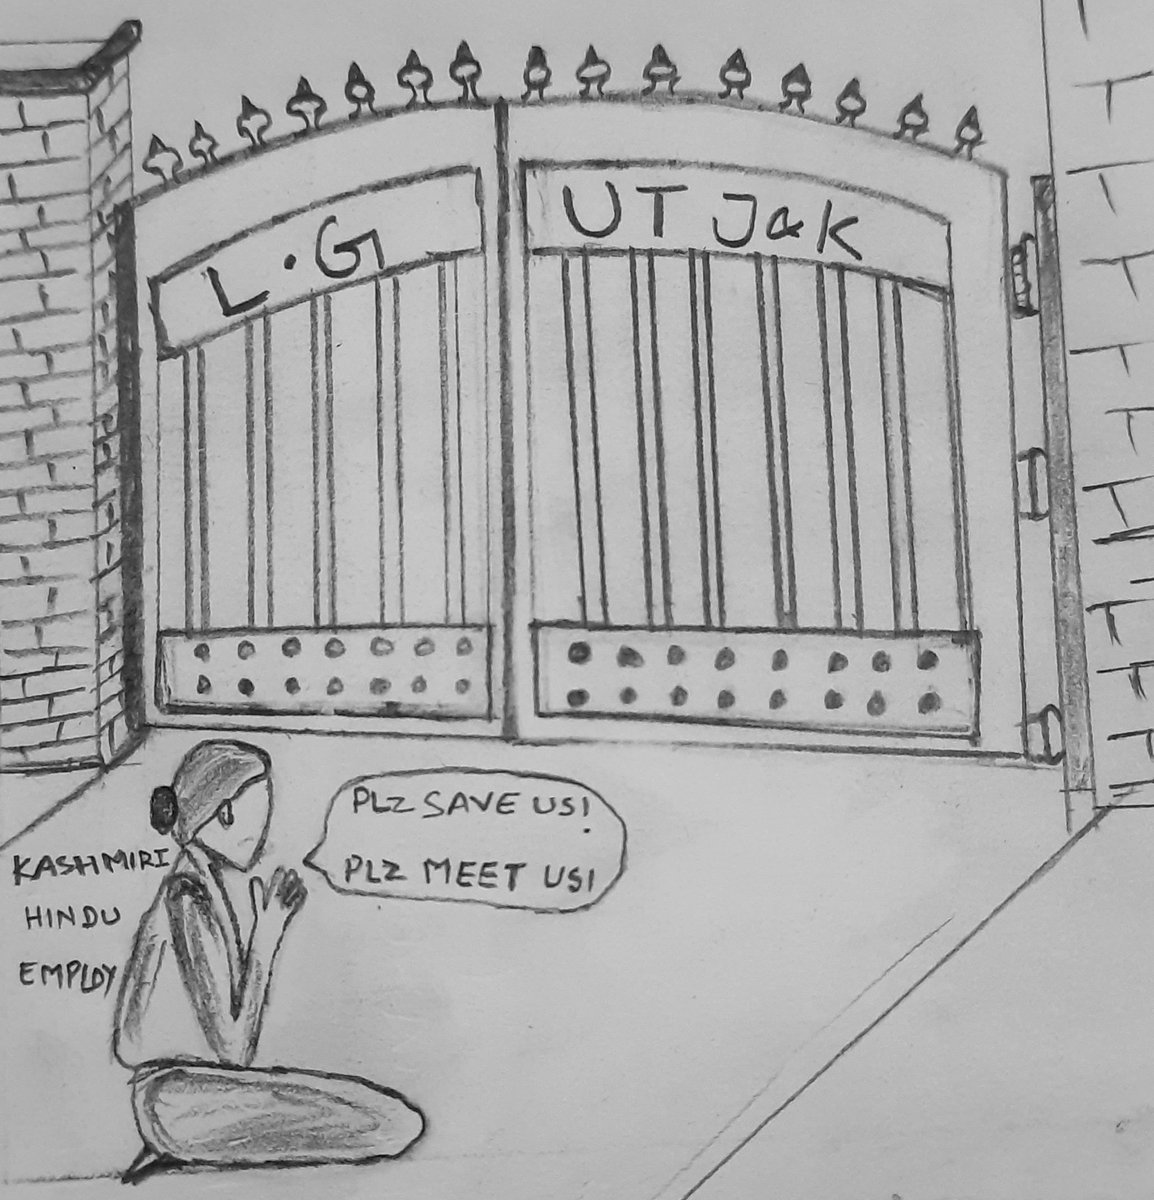 L.G
UT J&K
PLZ SAVE US!
PLZ MEET US!
KASHMIRI
HINDU
EMPLOY